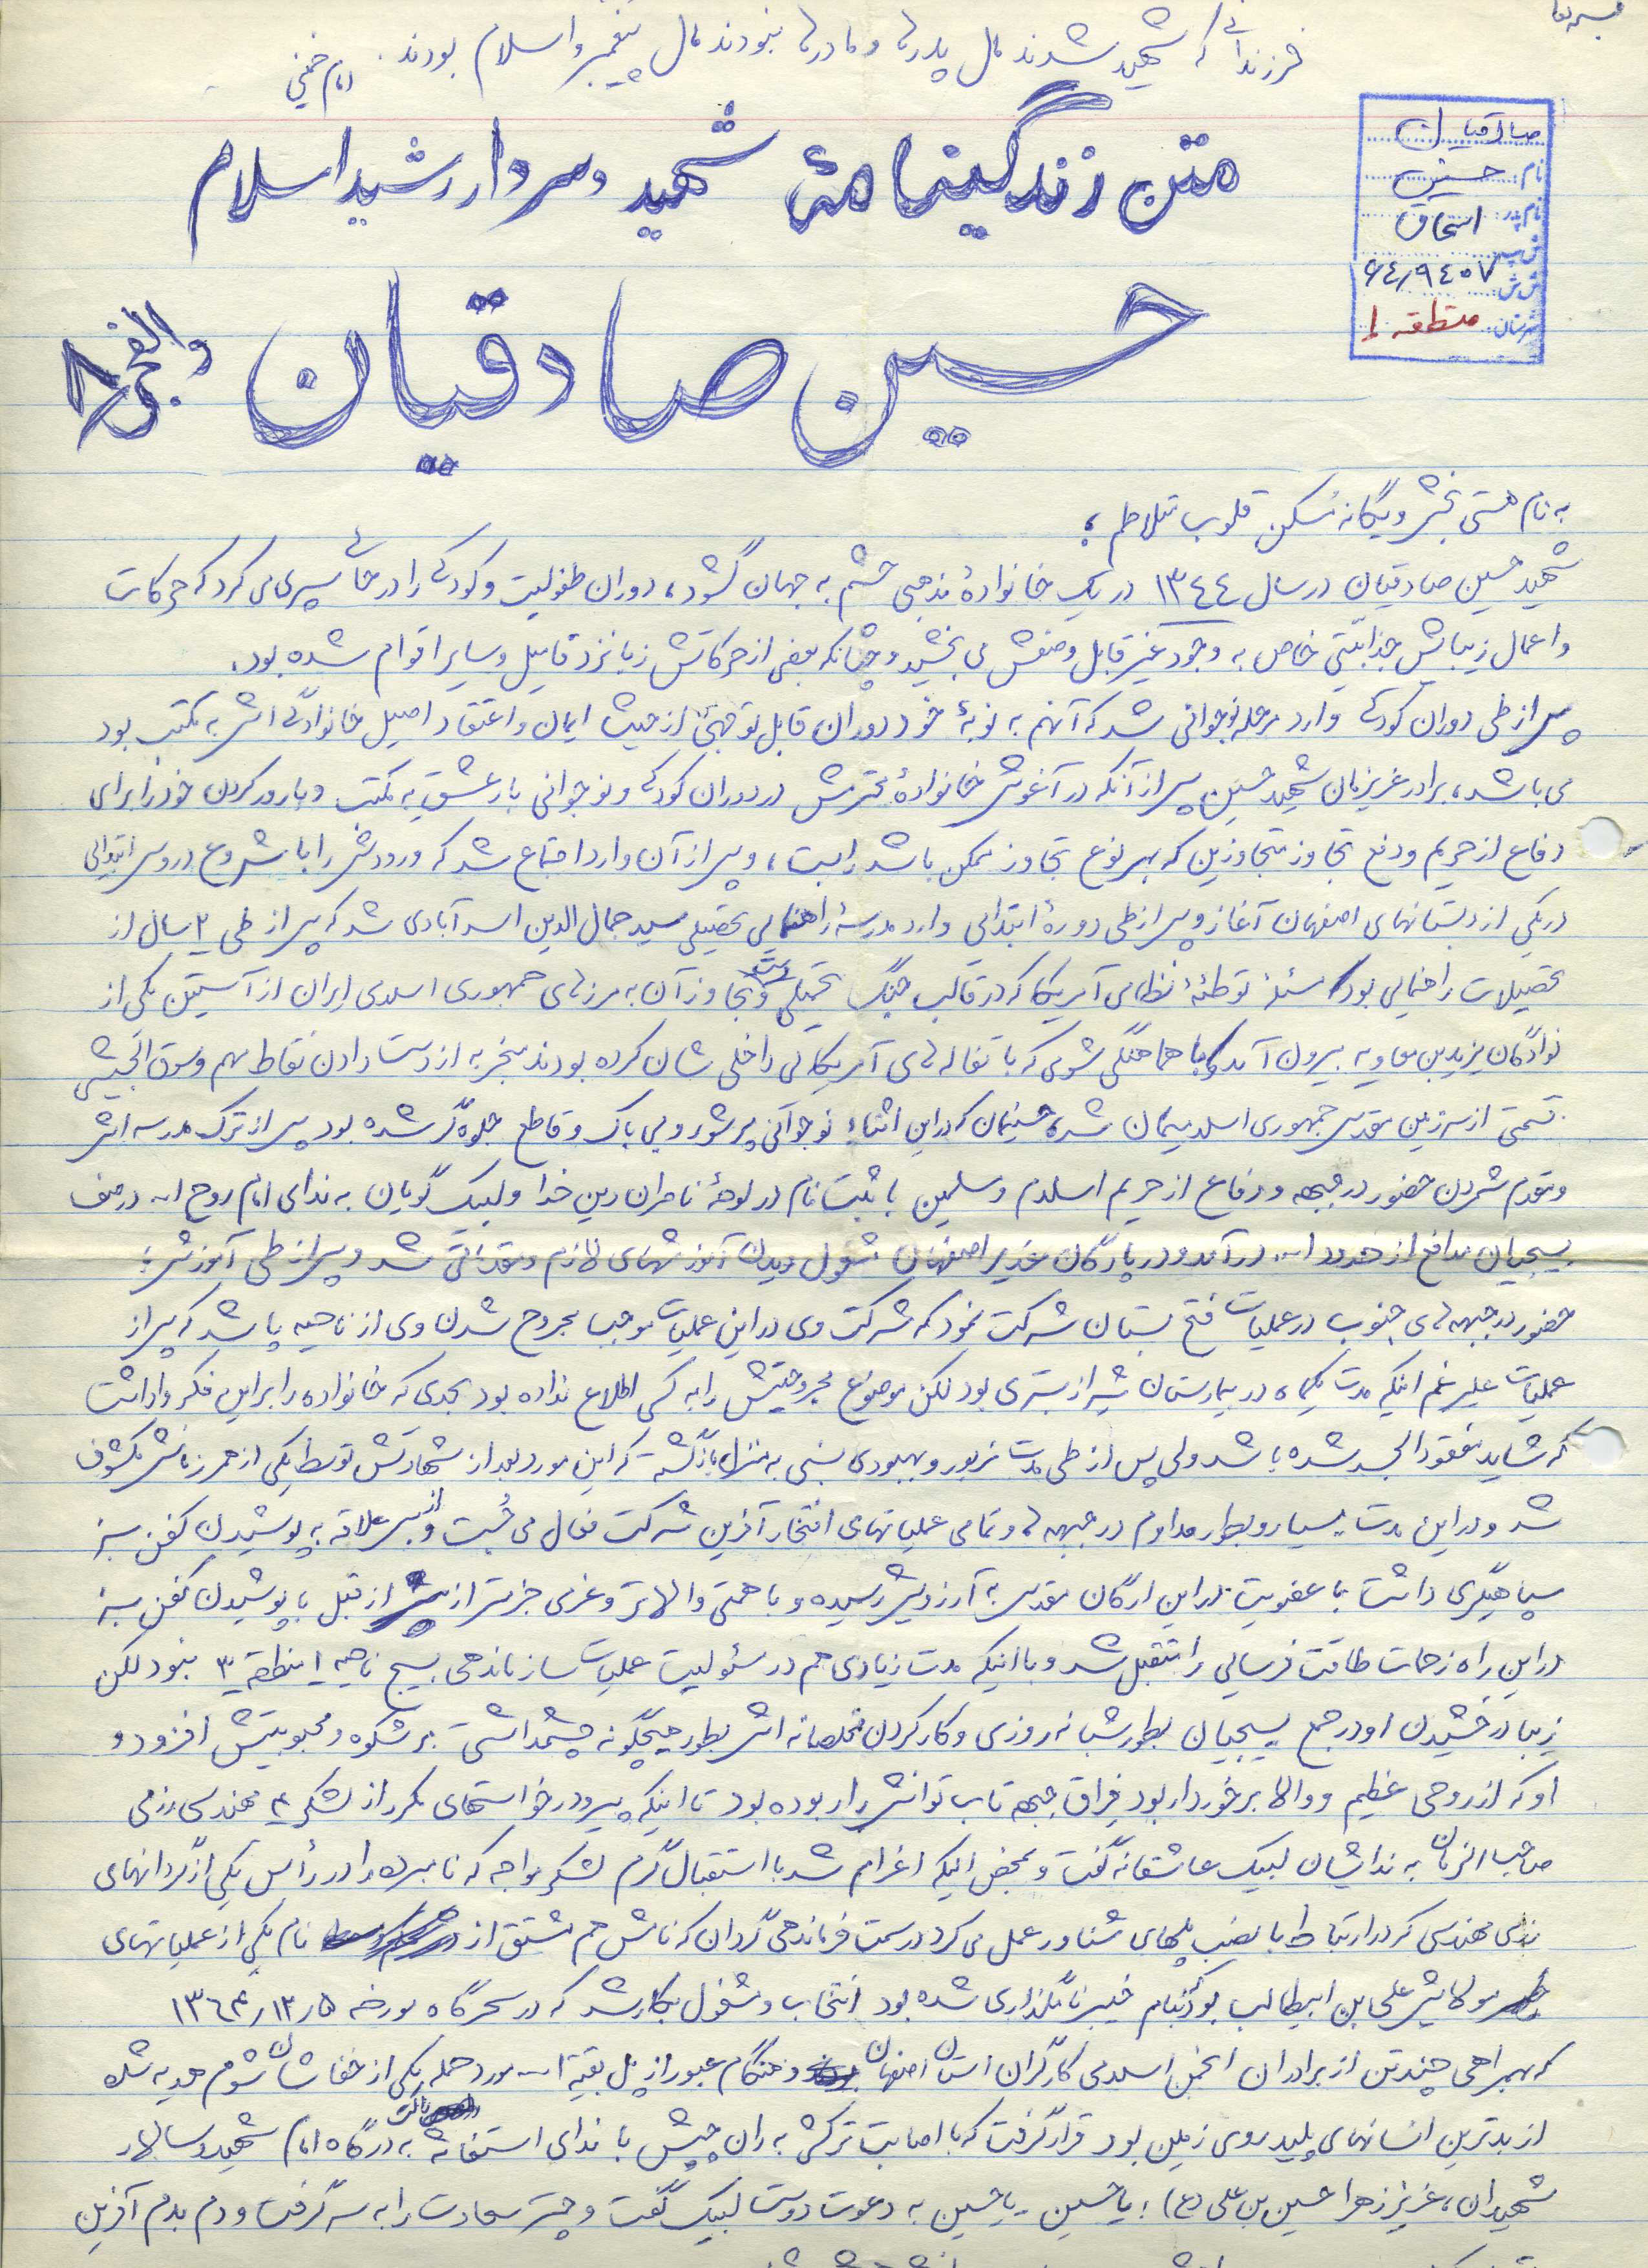 بسمه تعالی
فرزندانی که شهید شدند مال پدرها و مادرها نبودند مال پیغمبر و اسلام بودند. امام خمینی
صادقیان
نام: حسین
نام پدر: اسحاق
ش پ
ش ش: ۶۴/۹۴۰۷
شهرستان: منطقه ۱
متن زندگینامهٔ شهید و سردار رشید اسلام
حسین صادقیان والفجر ۸
به نام هستی بخش و یگانه مُسکن قلوب متلاطم ؛
شهید حسین صادقیان در سال ۱۳۴۴ در یک خانوادهٔ مذهبی چشم به جهان گشود، دوران طفولیت و کودکی را در حالی سپری می کرد که حرکات
و اعمال زیبایش جذابیتی خاص به وجود غیر قابل وصفش می بخشید و چنانکه بعضی از حرکاتش زبانزد فامیل و سایر اقوام شده بود.
پس از طی دوران کودکی وارد مرحله نوجوانی شد که آنهم به نوبهٔ خود دوران قابل توجهی از حیث ایمان و اعتقاد اصیل خانوادگی اش به مکتب بود
می باشد، برادر عزیزمان شهید حسین پس از آنکه در آغوش خانوادهٔ محترمش در دوران کودکی و نوجوانی بار عشق به مکتب و بارور کردن خود را برای
دفاع از حریم و دفع تجاوز متجاوزین که بهر نوع تجاوز ممکن باشد را بست، و پس از آن وارد اجتماع شد که ورودش را با شروع دروس ابتدائی
در یکی از دبستانهای اصفهان آغاز و پس از طی دورهٔ ابتدائی وارد مدرسهٔ راهنمایی تحصیلی سید جمال الدین اسدآبادی شد که پس از طی ۲ سال از
تحصیلات راهنمایی بود که مسئلهٔ توطئهٔ نظامی آمریکا که در قالب جنگ تحمیلی و تجاوز آن به مرزهای جمهوری اسلامی ایران از آستین یکی از
نوادگان یزید بن معاویه بیرون آمد و با هماهنگی شومی که با تفاله های آمریکائی داخلی شان کرده بودند منجر به از دست دادن نقاط مهم و سوق الجیشی
قسمتی از سرزمین مقدس جمهوری اسلامیمان شد، حسینمان که در این اثناء نوجوانی پرشور و بی باک و قاطع جلوه گر شده بود پس از ترک مدرسه اش
و مقدم شمردن حضور در جبهه و دفاع از حریم اسلام و مسلمین با ثبت نام در لوحهٔ ناصران دین خدا و لبیک گویان به ندای امام روح ا... در صف
بسیجیان مدافع از حدود ا... در آمد و در پادگان غدیر اصفهان مشغول دیدن آموزشهای لازم و مقدماتی شد و پس از طی آموزش:
حضور در جبهه های جنوب در عملیات فتح بستان شرکت نمود که شرکت وی در این عملیات موجب مجروح شدن وی از ناحیه پا شد که پس از
عملیات علیرغم اینکه مدت یکماه در بیمارستان شیراز بستری بود لکن موضوع مجروحیتش را به کسی اطلاع نداده بود بحدی که خانواده را بر این فکر واداشت
که شاید مفقود الجسد شده باشد ولی پس از طی مدت مزبور و بهبودی نسبی به منزل بازگشت که این مورد بعد از شهادتش توسط یکی از همرزمانش مکشوف
شد و در این مدت بسیار و بطور مداوم در جبهه ها و تمامی عملیاتهای افتخار آفرین شرکت فعال می جُست و از بس علاقه به پوشیدن کفن سبز
سپاهیگری داشت با عضویت در این ارگان مقدس به آرزویش رسیده و با همتی والاتر و عزمی جزمتر از قبل با پوشیدن کفن سبز
در این راه زحمات طاقت فرسائی را متقبل شد و با اینکه مدت زیادی هم در مسئولیت عملیات سازماندهی بسیج ناحیه ۱ منطقه ۳ نبود لکن
زیبا درخشیدن او در جمع بسیجیان بطور شبانه روزی و کار کردن مخلصانه اش بطور هیچگونه چشمداشتی بر شکوه و محبوبیتش افزود و
او که از روحی عظیم و والا برخوردار بود فراق جبهه تاب توانش را ربوده بود تا اینکه پیرو درخواستهای مکرر از لشکر ۴۰ مهندسی رزمی
صاحب الزمان به ندایشان لبیک عاشقانه گفت و بمحض اینکه اعزام شد با استقبال گرم لشکر مواجه که نامبرده را در رأس یکی از گردانهای
رزمی مهندسی که در ارتباط با نصب پلهای شناور عمل می کرد در سمت فرماندهی گردان که نامش هم مشتق از نام یکی از عملیاتهای
مولایش علی بن ابیطالب بود بنام خیبر نامگذاری شده بود انتخاب و مشغول بکار شد که در سحرگاه مورخه ۱۳۶۴/۱۲/۵
که بهمراهی چند تن از برادران انجمن اسلامی کارگران استان اصفهان و هنگام عبور از پل بقیة ا... مورد حمله یکی از خفاشان شوم هدیه شده
از بدترین انسانهای پلید روی زمین بود قرار گرفت که با اصابت ترکش به ران چپش با ندای استغاثه به درگاه امام شهید و سالار
شهیدان، عزیز زهرا حسین بن علی (ع) ؛ یا حسین - یا حسین به دعوت دوست لبیک گفت و چتر سعادت را به سر گرفت و دم بدم آفرین